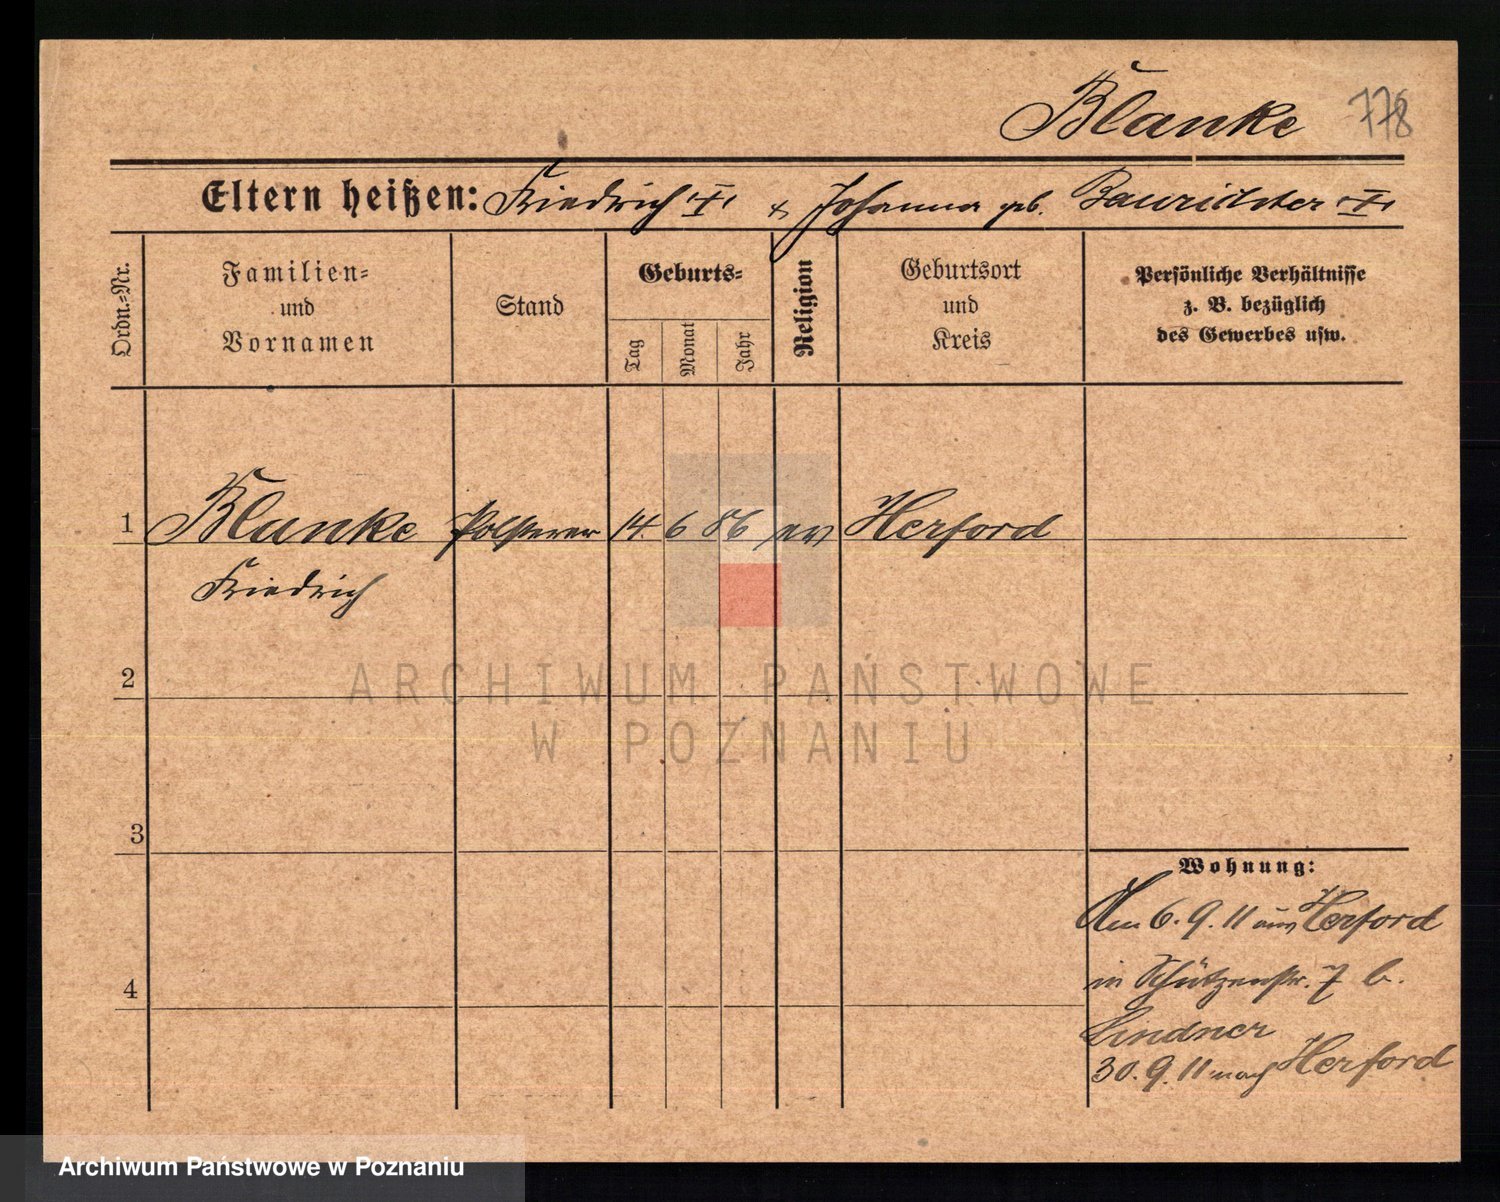 Blanke 778
Eltern heißen: Friedrich "†" & Johanna geb. Baurichter "†"
Ordn.=Nr.
Familien=
und
Vornamen
Stand
Geburts=
Tag
Monat
Jahr
Religion
Geburtsort
und
Kreis
Persönliche Verhältnisse
z. B. bezüglich
des Gewerbes usw.
1 Blanke Polsterer 14. 6 86 ev Herford
Friedrich
2
3
4
Wohnung:
Am 6. 9. 11 aus Herford
in Schützenstr. 7 b.
Lindner
30. 9. 11 nach Herford
ARCHIWUM PAŃSTWOWE
W POZNANIU
Archiwum Państwowe w Poznaniu